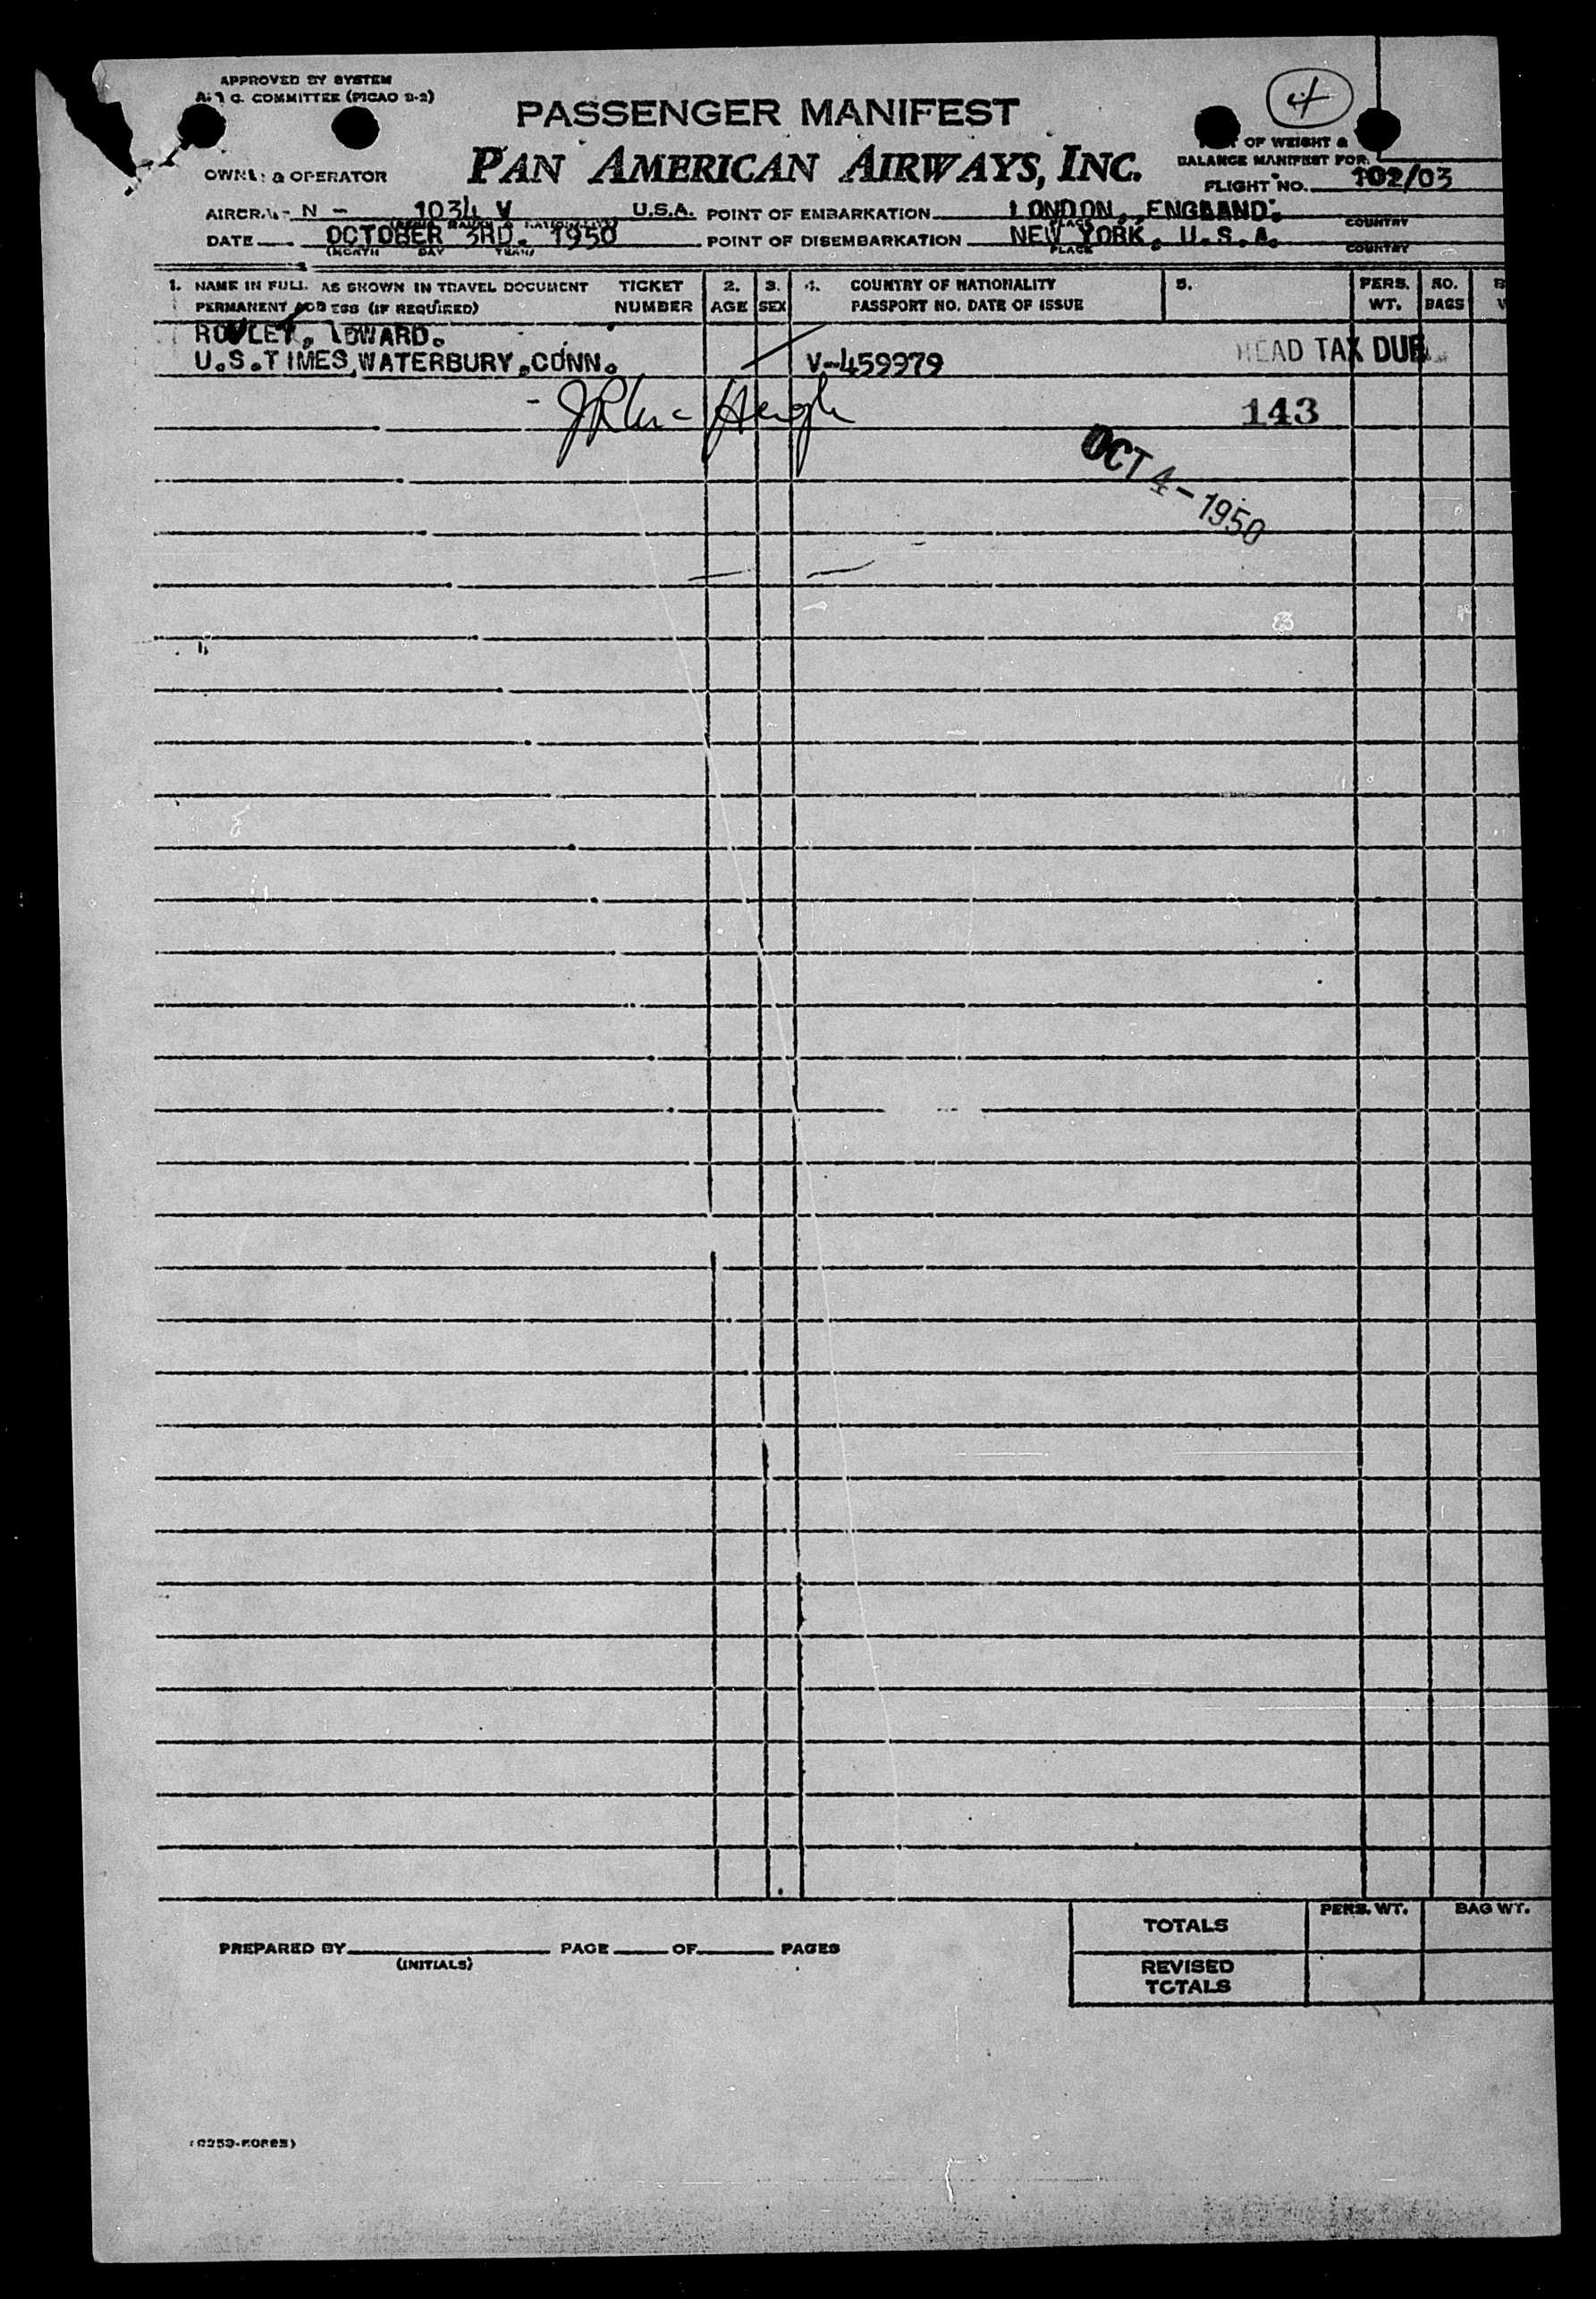 APPROVED BY SYSTEM
COMMITTEE (PICAO
PASSENGER MANIFEST
4
PAN AMERICAN AIRWAYS, INC.
OF WEIGHT &
BALANCE MANIFEST FOR
OWNER & OPERATOR
FLIGHT NO. 102/03
N - 1034 V U.S.A. POINT OF EMBARKATION LONDON, ENGLAND.
PLACE COUNTRY
DATE OCTOBER 3RD. 1950 POINT OF DISEMBARKATION NEW YORK, U.S.A.
(MONTH DAY YEAR) PLACE COUNTRY
1. NAME IN FULL AS SHOWN IN TRAVEL DOCUMENT TICKET 2. 3. 4. COUNTRY OF NATIONALITY 5. PERS. NO.
PERMANENT ADDRESS (IF REQUIRED) NUMBER AGE SEX PASSPORT NO. DATE OF ISSUE WT. BAGS
EDWARD.
U.S.TIMES,WATERBURY,CONN. V-459979 HEAD TAX DUE
143
OCT 4-1950
PERS. WT. BAG WT.
TOTALS
PREPARED BY PAGE OF PAGES
(INITIALS)
REVISED
TOTALS